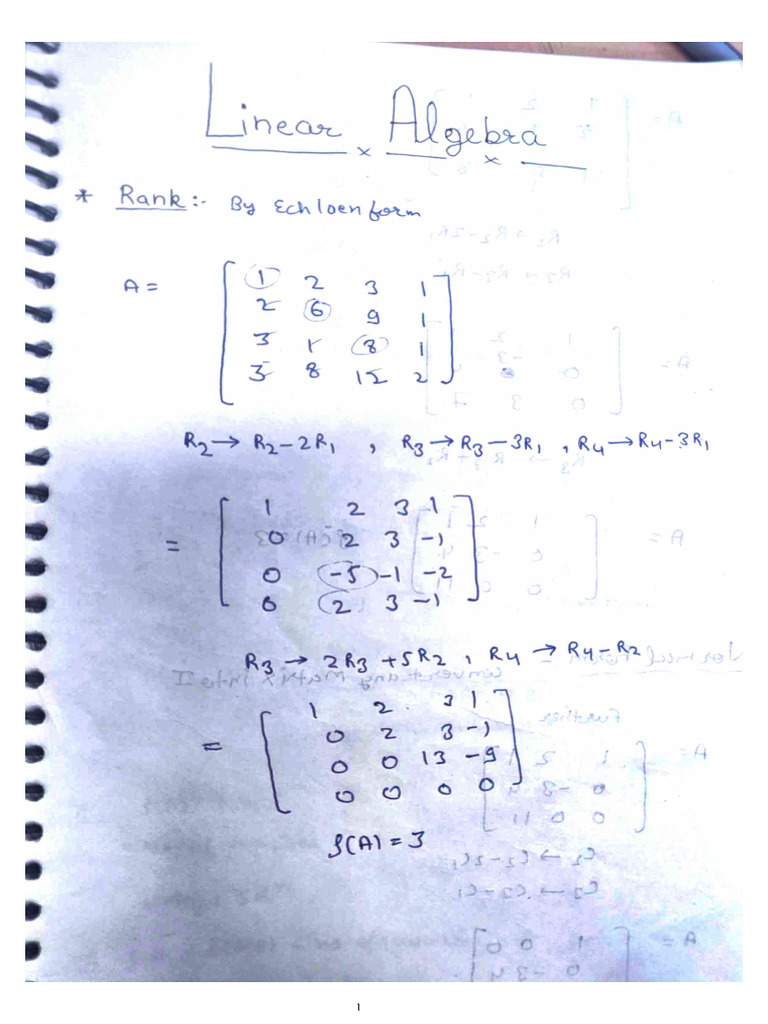 Linear Algebra
* Rank:- By Echloen form
A = [ 1 2 3 1
2 6 9 1
3 1 8 1
3 8 12 2 ]
R2 → R2 - 2R1 , R3 → R3 - 3R1 , R4 → R4 - 3R1
= [ 1 2 3 1
0 2 3 -1
0 -5 -1 -2
0 2 3 -1 ]
R3 → 2R3 + 5R2 , R4 → R4 - R2
= [ 1 2 3 1
0 2 3 -1
0 0 13 -9
0 0 0 0 ]
ρ(A) = 3
1